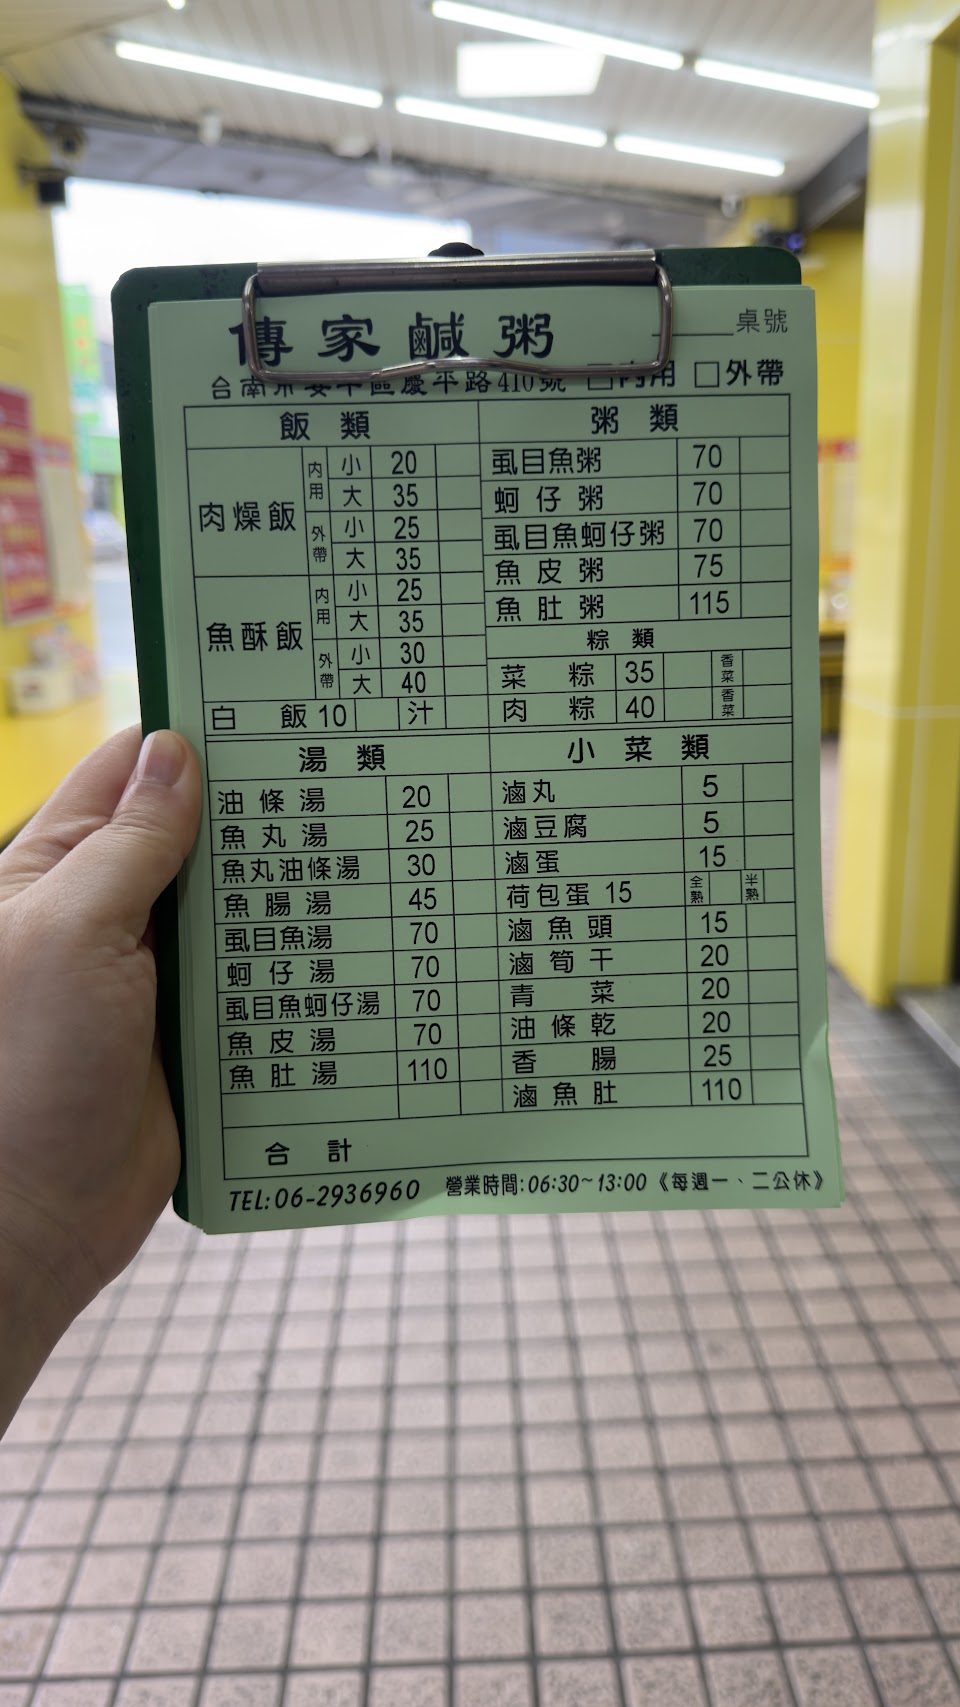 傳家鹹粥
______桌號
台南市安平區慶平路410號 □內用 □外帶
飯類
肉燥飯
內用 小 20
大 35
外帶 小 25
大 35
魚酥飯
內用 小 25
大 35
外帶 小 30
大 40
白飯 10 汁
粥類
虱目魚粥 70
蚵仔粥 70
虱目魚蚵仔粥 70
魚皮粥 75
魚肚粥 115
粽類
菜粽 35 香菜
肉粽 40 香菜
湯類
油條湯 20
魚丸湯 25
魚丸油條湯 30
魚腸湯 45
虱目魚湯 70
蚵仔湯 70
虱目魚蚵仔湯 70
魚皮湯 70
魚肚湯 110
小菜類
滷丸 5
滷豆腐 5
滷蛋 15
荷包蛋 15 全熟 半熟
滷魚頭 15
滷筍干 20
青菜 20
油條乾 20
香腸 25
滷魚肚 110
合計
TEL:06-2936960 營業時間:06:30~13:00《每週一、二公休》